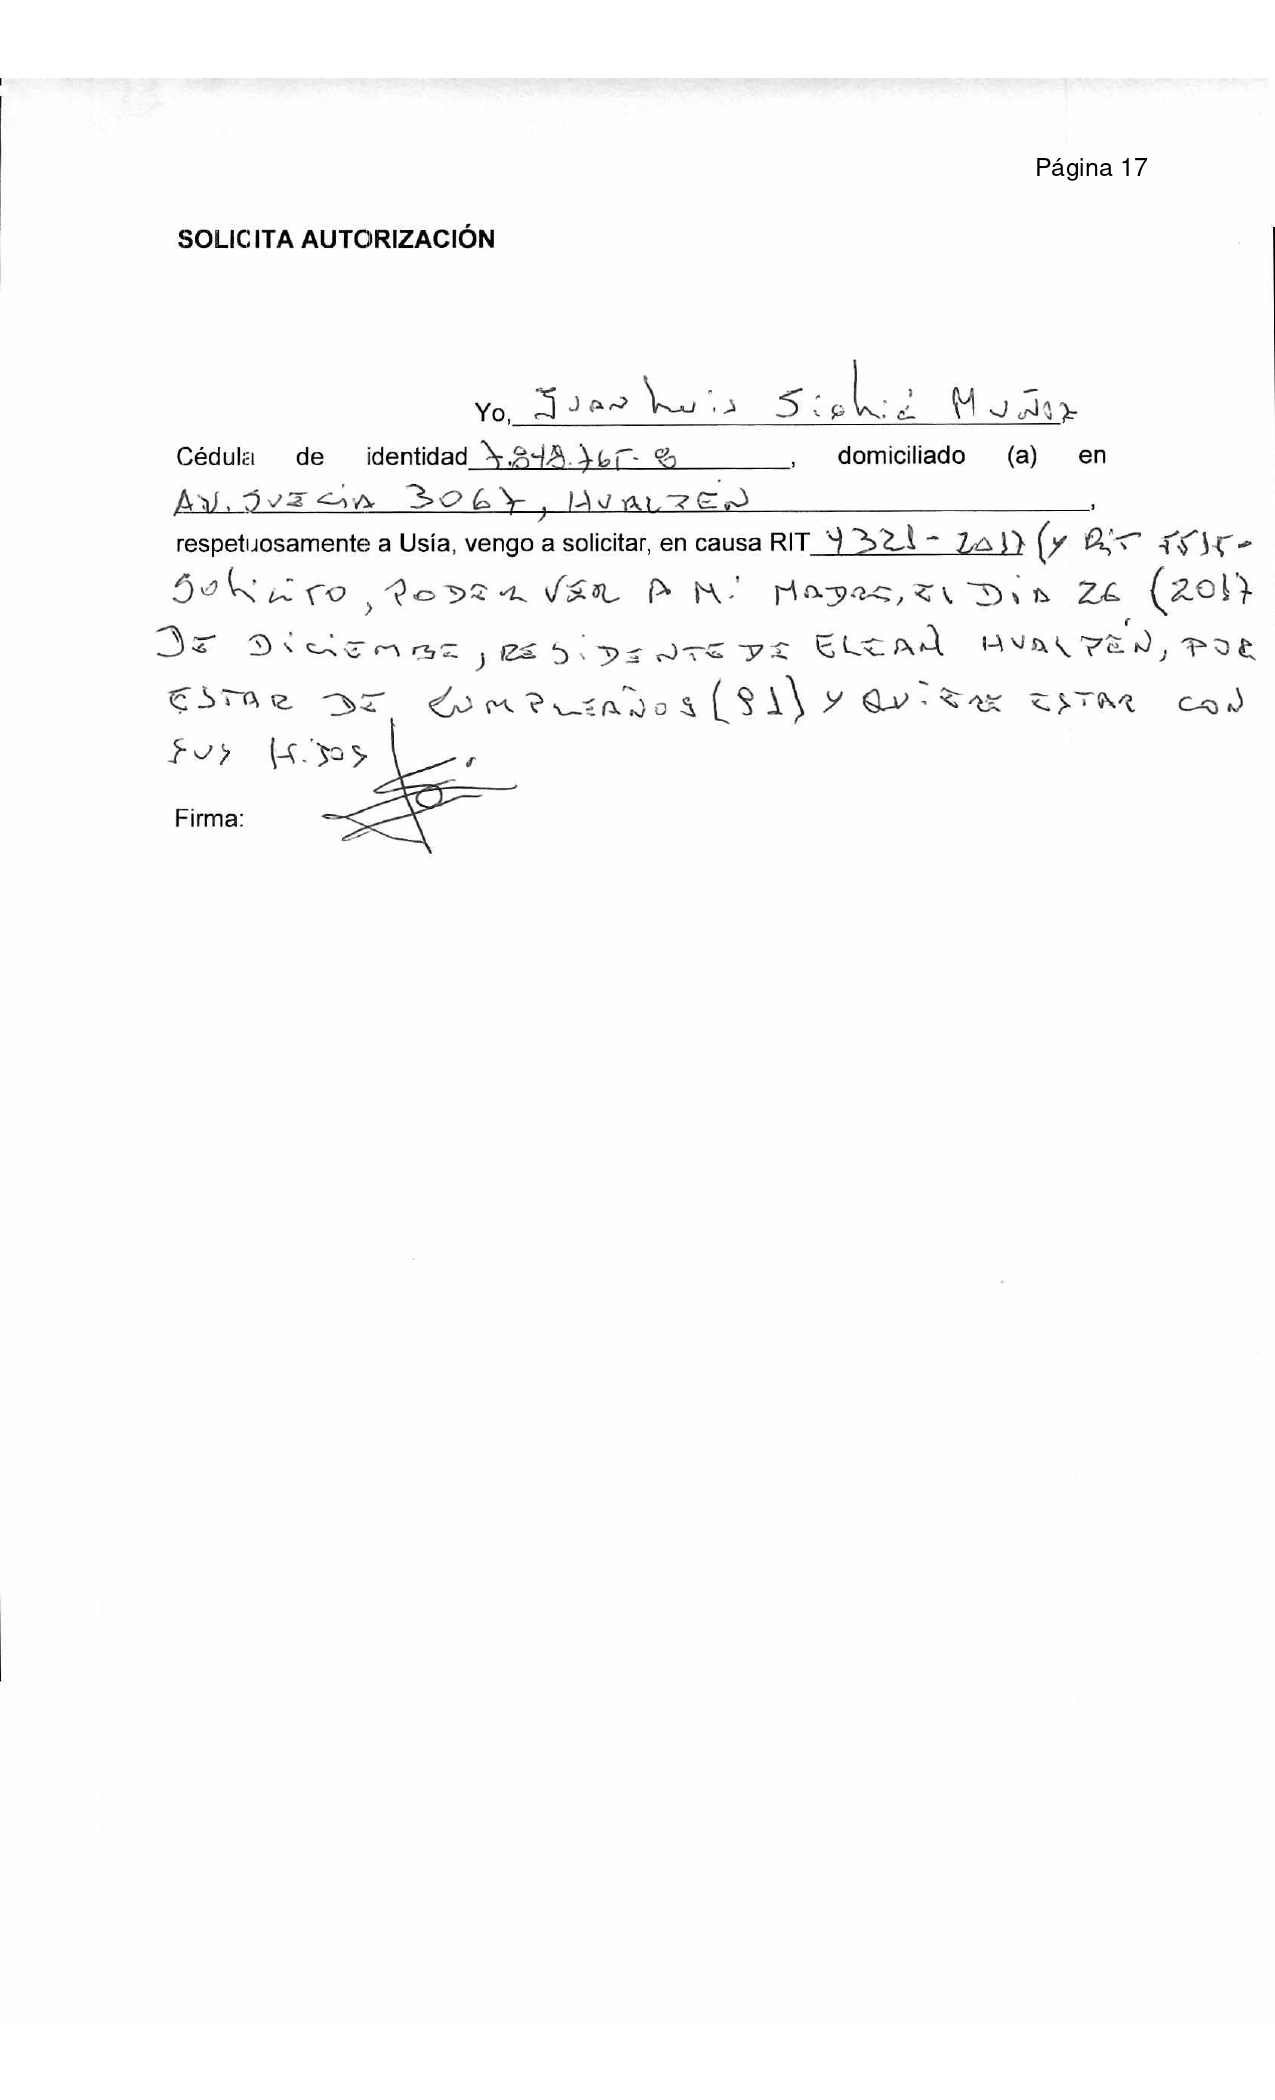 Página 17
SOLICITA AUTORIZACIÓN
Yo, Juan Luis Muñoz
Cédula de identidad 7.849.765-8, domiciliado (a) en
AV. SUECIA 3067, HUALPÉN,
respetuosamente a Usía, vengo a solicitar, en causa RIT 4321-2017 (y RIT
SOLICITO, PODER VER A MI MADRE, EL DIA 26 (2017
DE DICIEMBRE, RESIDENTE DE ELEAM HUALPÉN, POR
ESTAR DE CUMPLEAÑOS (91) Y QUIERE ESTAR CON
SUS HIJOS.
Firma: